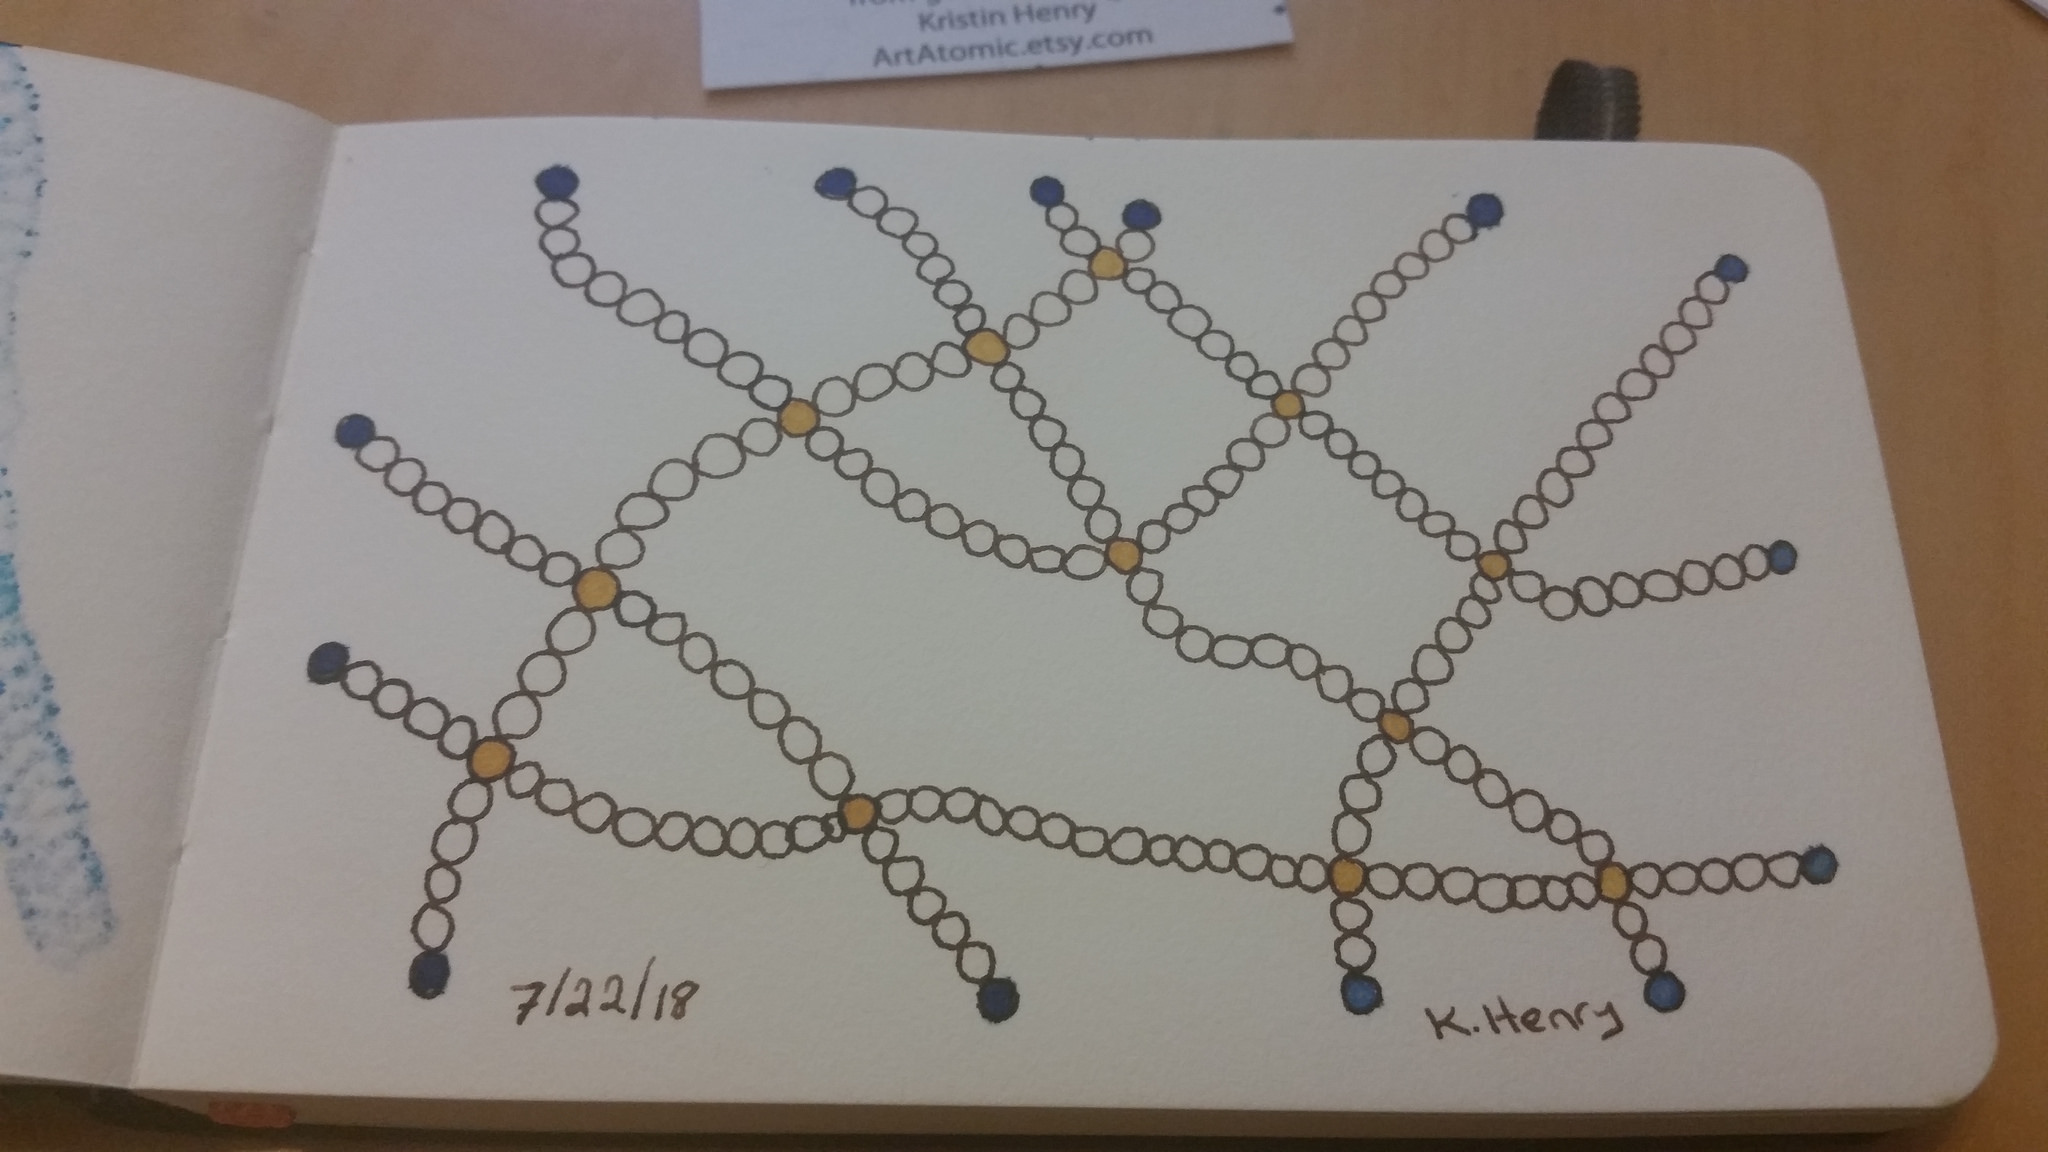 Kristin Henry
ArtAtomic.etsy.com
7/22/18
K. Henry